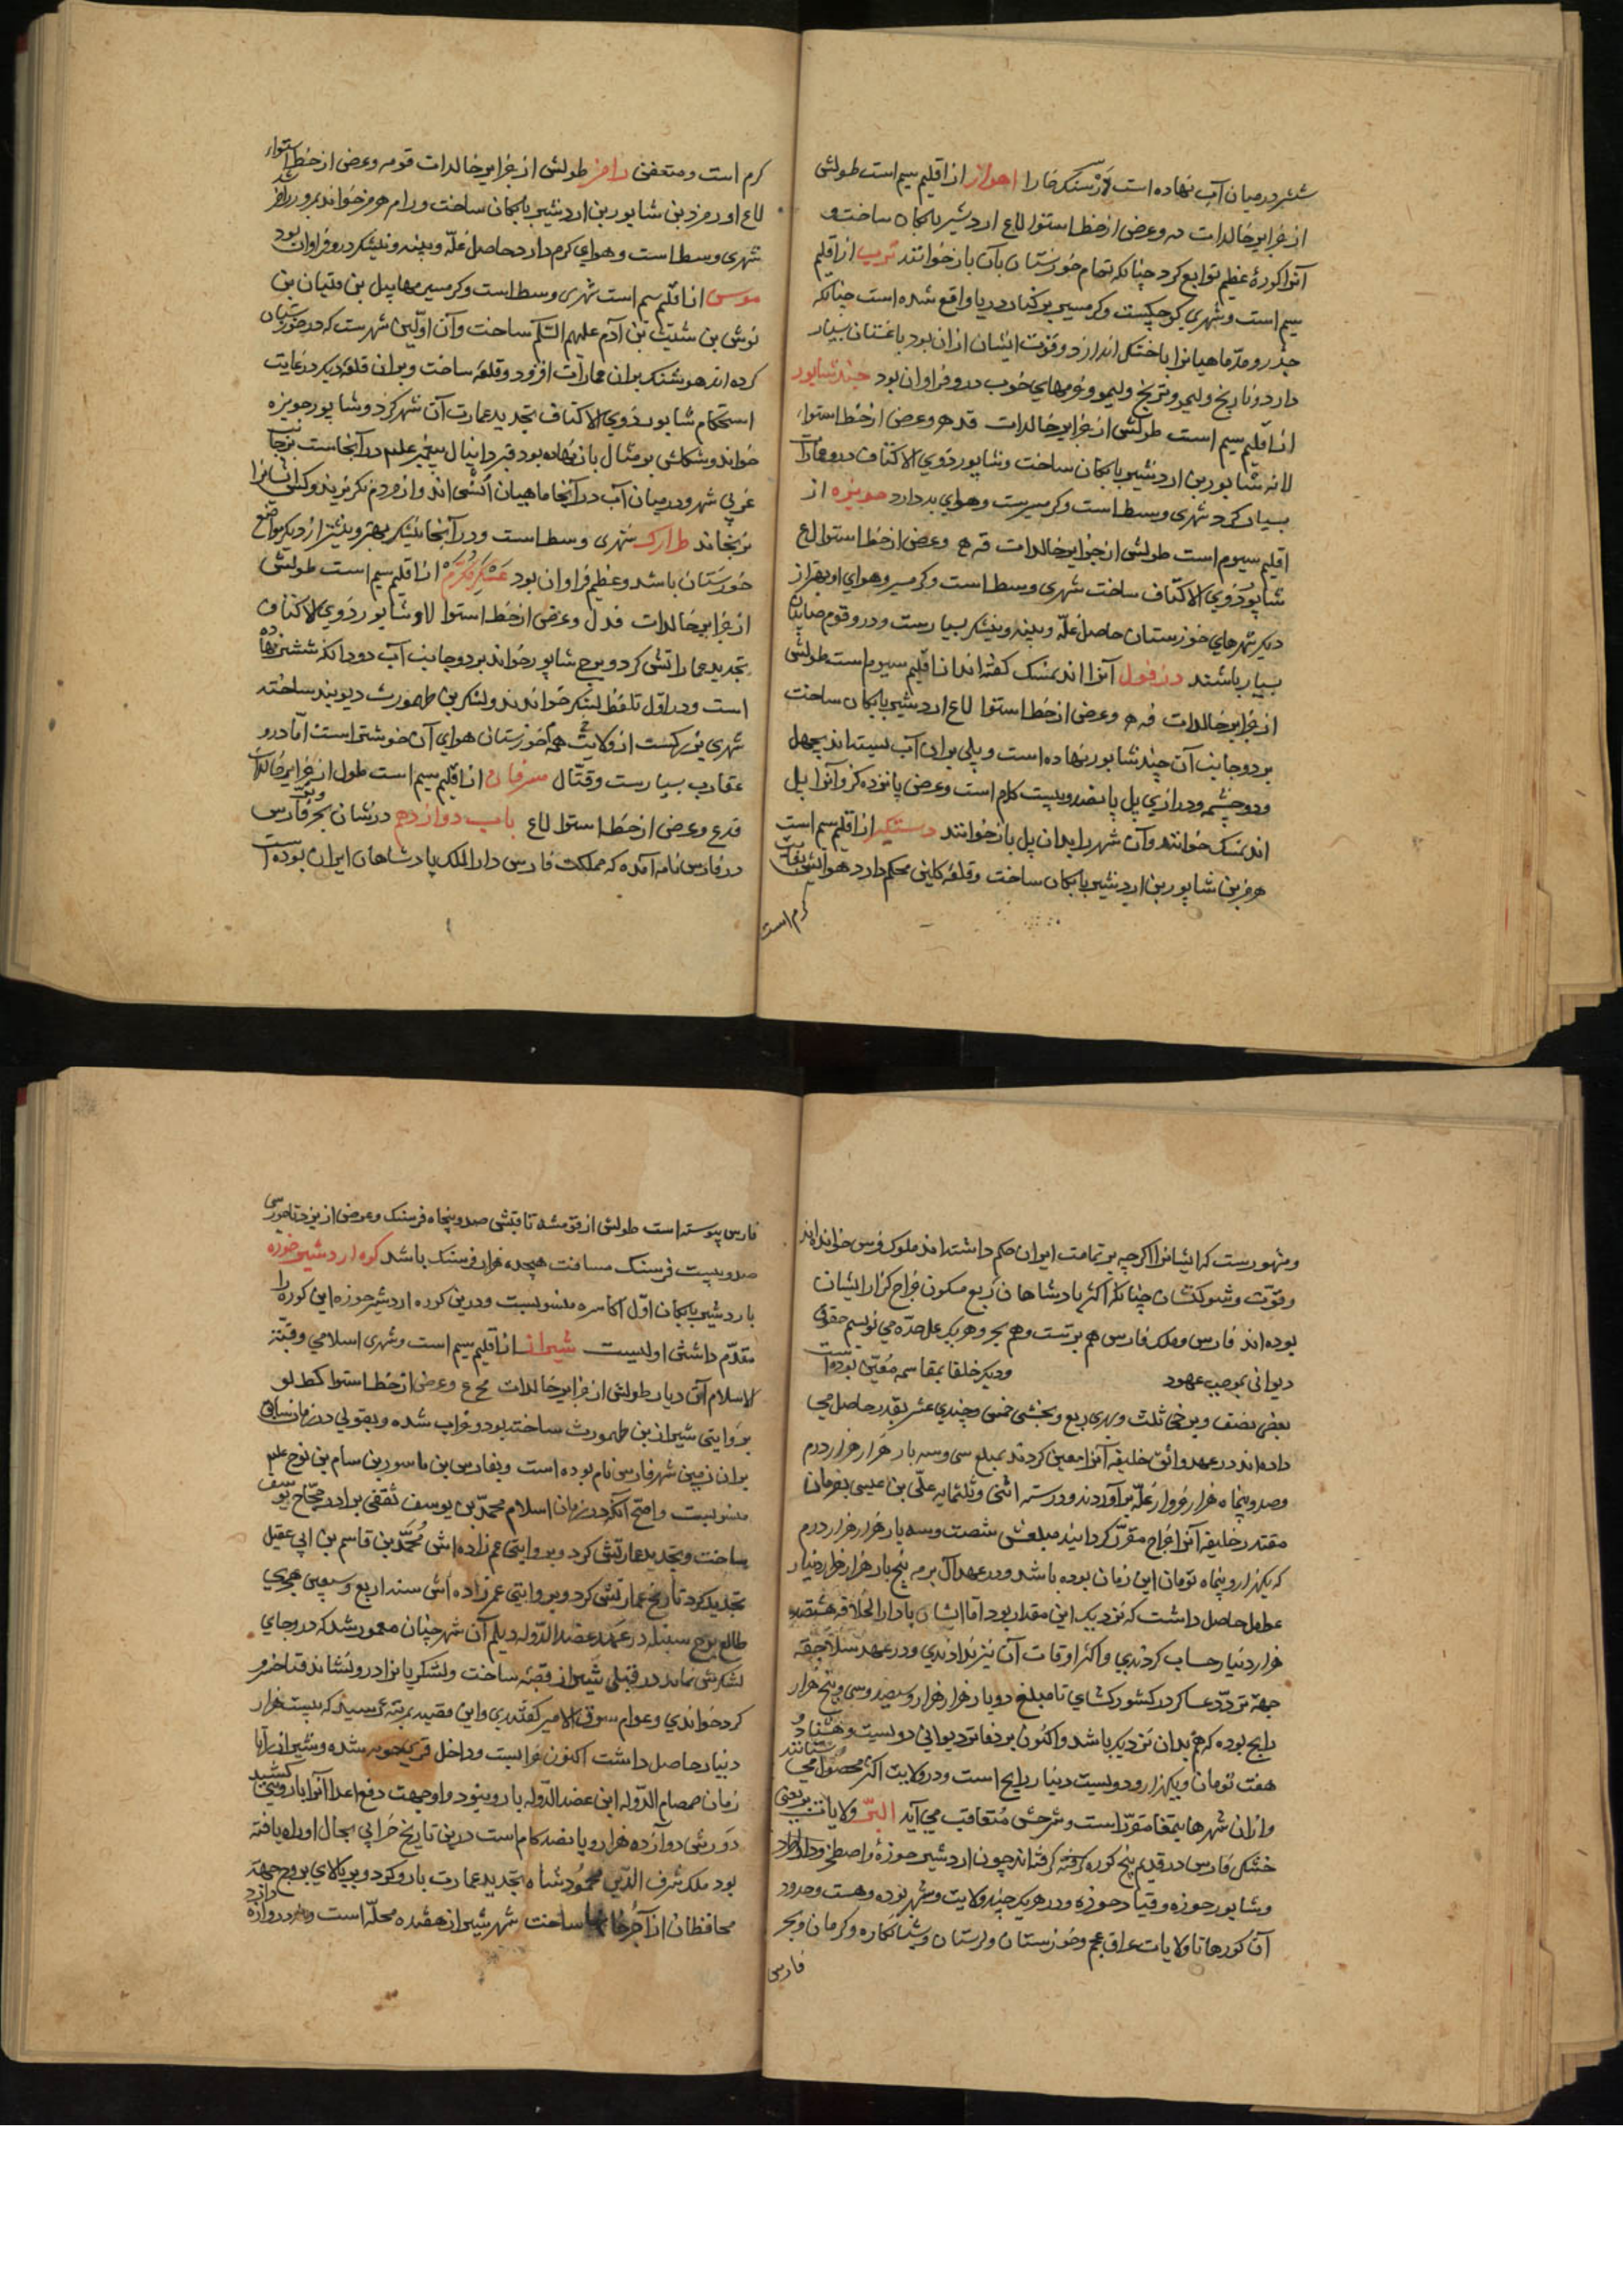 ششتر در میان آب نهاده است لارسنک خارا اهواز از اقلیم سیم است طولش
از جزایر خالدات مه وعرض از خط استوا لاع اردشیر بابکان ساخت و
آنرا کوره عظیم توابع کرد چنانکه تمام خورستان بآن باز خوانند تریب از اقلیم
سیم است وشهری کوچکست وکرمسیر بر کنار دریا واقع شده است چنانکه
جذر ومد ماهیانرا با خشکی اندازد وقوت ایشان از ان بود باغستان بسیار
دارد ونارنج ولیمو وترنج ولیمو وخرمهای خوب درو فراوان بود جندشاپور
از اقلیم سیم است طولش از جزایر خالدات قده وعرض از خط استواء
لانه شاپور بن اردشیر بابکان ساخت وشاپور ذوی الاکتاف درو عمارات
بسیار کرد شهری وسط است وکرمسیرست وهوای بد دارد حویزه از
اقلیم سیوم است طولش از جزایر خالدات قه ه وعرض از خط استوا لاع
شاپور ذوی الاکتاف ساخت شهری وسط است وکرمسیر وهوای او بهتر از
دیکر شهرهای خوزستان حاصل غله وپنبه ونیشکر بسیارست ودرو قوم صابیان
بسیار باشند دزفول آنرا اندیمشک کفته اند از اقلیم سیوم است طولش
از جزایر خالدات فه ه وعرض از خط استوا لاع اردشیر بابکان ساخت
بر دو جانب آن جند شاپور نهاده است وپلی بران آب بسته اند بچهل
ودو چشمه ودرازی پل پانصد وبیست کام است وعرض پانزده کز وآنرا پل
اندیمشک خوانند وآن شهر را بدان پل باز خوانند دستکیر از اقلیم سیم است
هرمز بن شاپور بن اردشیر بابکان ساخت وقلعه کلین محکم دارد هوایش بغایت
کرم است
کرم است ومتعفن رامز طولش از جزایر خالدات قومه وعرض از خط استواء
لاع اورمزد بن شاپور بن اردشیر بابکان ساخت ورام هرمز خواند بمرور رامز شد
شهری وسط است وهوای کرم دارد حاصل غله وپنبه ونیشکر درو فراوان بود
موس از اقلیم سیم است شهری وسط است وکرمسیر مهاییل بن قتیان بن
نوش بن شیث بن آدم علیهم السلم ساخت وآن اولین شهرست که در خورستان
کرده اند هوشنک بران عمارات افزود وقلعه ساخت وبران قلعه دیکر در غایت
استحکام شاپور ذوی الاکتاف تجدید عمارت آن شهر کرد وشاپور حویزه
خواند وشکلش بر مثال باز نهاده بود قبر دانیال پیغمبر علیه در آنجاست بر جانب
غربی شهر ودر میان آب در آنجا ماهیان انسی اند واز مردم نکریزند وکس ایشانرا
نرنجاند طرارک شهری وسط است ودر آنجا نیشکر بهتر وبیشتر از دیکر مواضع
خورستان باشد وعظیم فراوان بود عسکر مکرم از اقلیم سیم است طولش
از جزایر خالدات فدل وعرض از خط استوا لاو شاپور ذوی الاکتاف
تجدید عماراتش کرد وبرج شاپور خواند بر دو جانب آب دودانکه ششتر نهاده
است ودر اول تلفظ لشکر خواندند ولشکر بن طهمورث دیوبند ساخته
شهری بزرکست از ولایت همه خورستان هوای آن خوشترست اما درو
عقارب بسیارست وقتال مسرقان از اقلیم سیم است طول از جزایر خالدات
قدع وعرض از خط استوا لاع باب دوازدهم در شان بحر فارس وبر
در فارس نامه آمده که مملکت فارس دار الملک پادشاهان ایران بوده است
ومشهورست که ایشانرا اکرچه بر تمامت ایران حکم داشته اند ملوک فرس خوانده اند
وقوت وشوکتشان چنانکه اکثر پادشاهان ربع مسکون خراج کزار ایشان
بوده اند فارس وملک فارس هم برست وهم بحر وهر یک علی حده می نویسم حقوق
دیوانی بموجب عهود ودیکر خلفا بمقاسمه معین بوده است
بعضی نصف وبرخی ثلث وبهری ربع وبخشی خمس وچندی عشر بقدر حاصل می
داده اند در عهد واثق خلیفه آنرا معین کردند بمبلغ سی وسه بار هزار هزار درم
وصد وپنجاه هزار خروار غله برآوردند ودر سنه اثنی وثلثمایه علی بن عیسی بفرمان
مقتدر خلیفه آنرا خراج مقرر کردانید مبلغش شصت وسه بار هزار هزار درم
که یکهزار وپنجاه تومان این زمان بوده باشد ودر عهد آل بویه پنج بار هزار هزار دینار
عطفل حاصل داشت که نزدیک این مقدار بود اما ایشان با دار الخلافه هشتصد
هزار دینار حساب کردندی واکثر اوقات آن نیز ندادندی ودر عهد سلاجقه
جهة تردد عساکر در کشور کشای تا مبلغ دو بار هزار هزار وسیصد وسی وپنج هزار
رایج بوده که هم بدان نزدیک باشد واکنون بر دفاتر دیوانی دویست وهشتاد و
هفت تومان ویکهزار ودویست دینار رایج است ودر ولایت اکثر محصول می ستانند
وازان شهرها بتمغا مقررست وشرحش متعاقب می آید البر ولایات بر یعنی
خشکی فارس در قدیم پنج کوره کرفته اند چون اردشیر حوزه واصطخر وداراب جرد
وشاپور حوزه وقباد حوزه ودر هر یک چند ولایت وشهر بوده وهست وحدود
آن کورها تا ولایات عراق عجم وخورستان ولرستان وشبانکاره وکرمان وبحر
فارس
فارس پیوسته است طولش از قومشه تا قیش صد وپنجاه فرسنک وعرض از یزد تا حورسی
صد وبیست فرسنک مسافت هیجده هزار فرسنک باشد کوره اردشیر خوره
باردشیر بابکان اول اکاسره منسوبست ودرین کوره اردشیر حوزه این کوره را
مقدم داشتن اولیست شیراز از اقلیم سیم است وشهری اسلامی وقبة
الاسلام آن دیار طولش از جزایر خالدات مح ع وعرض از خط استوا کط لو
بروایتی شیراز بن طهمورث ساخته بود وخراب شده وبقولی در زمان سابق
بران زمین شهر فارس نام بوده است وبفارس بن ماسور بن سام بن نوح علیه
منسوبست واصح آنکه در زمان اسلام محمد بن یوسف ثقفی برادر حجاج یوسف
ساخت وتجدید عمارتش کرد وبروایتی عم زاده اش محمد بن قاسم بن ابی عقیل
تجدید کرد تاریخ عمارتش کرد وبروایتی عمزاده اش سنه اربع وسبعین هجری
طالع برج سنبله در عهد عضد الدوله دیلم آن شهر چنان معمور شد که درو جای
لشکرش نماند در قبلی شیراز قصبه ساخت ولشکریانرا درو نشاند فنا خسرو
کرد خواندی وعوام سوق الامیر کفتندی واین قصبه بمرتبه رسید که بیست هزار
دینار حاصل داشت اکنون خرابست وداخل قریه حومه شده وشیراز را تا
زمان صمصام الدوله ابن عضد الدوله بارو نبود او جهت دفع اعدا آنرا باروی کشید
دورش دوازده هزار وپانصد کام است درین تاریخ خرابی بحال او راه یافته
بود ملک شرف الدین محمود شاه تجدید عمارت بارو کرد وبر بالای بروج جهة
محافظان از آجر خانها ساخت شهر شیراز هفده محله است ونه دروازه دارد